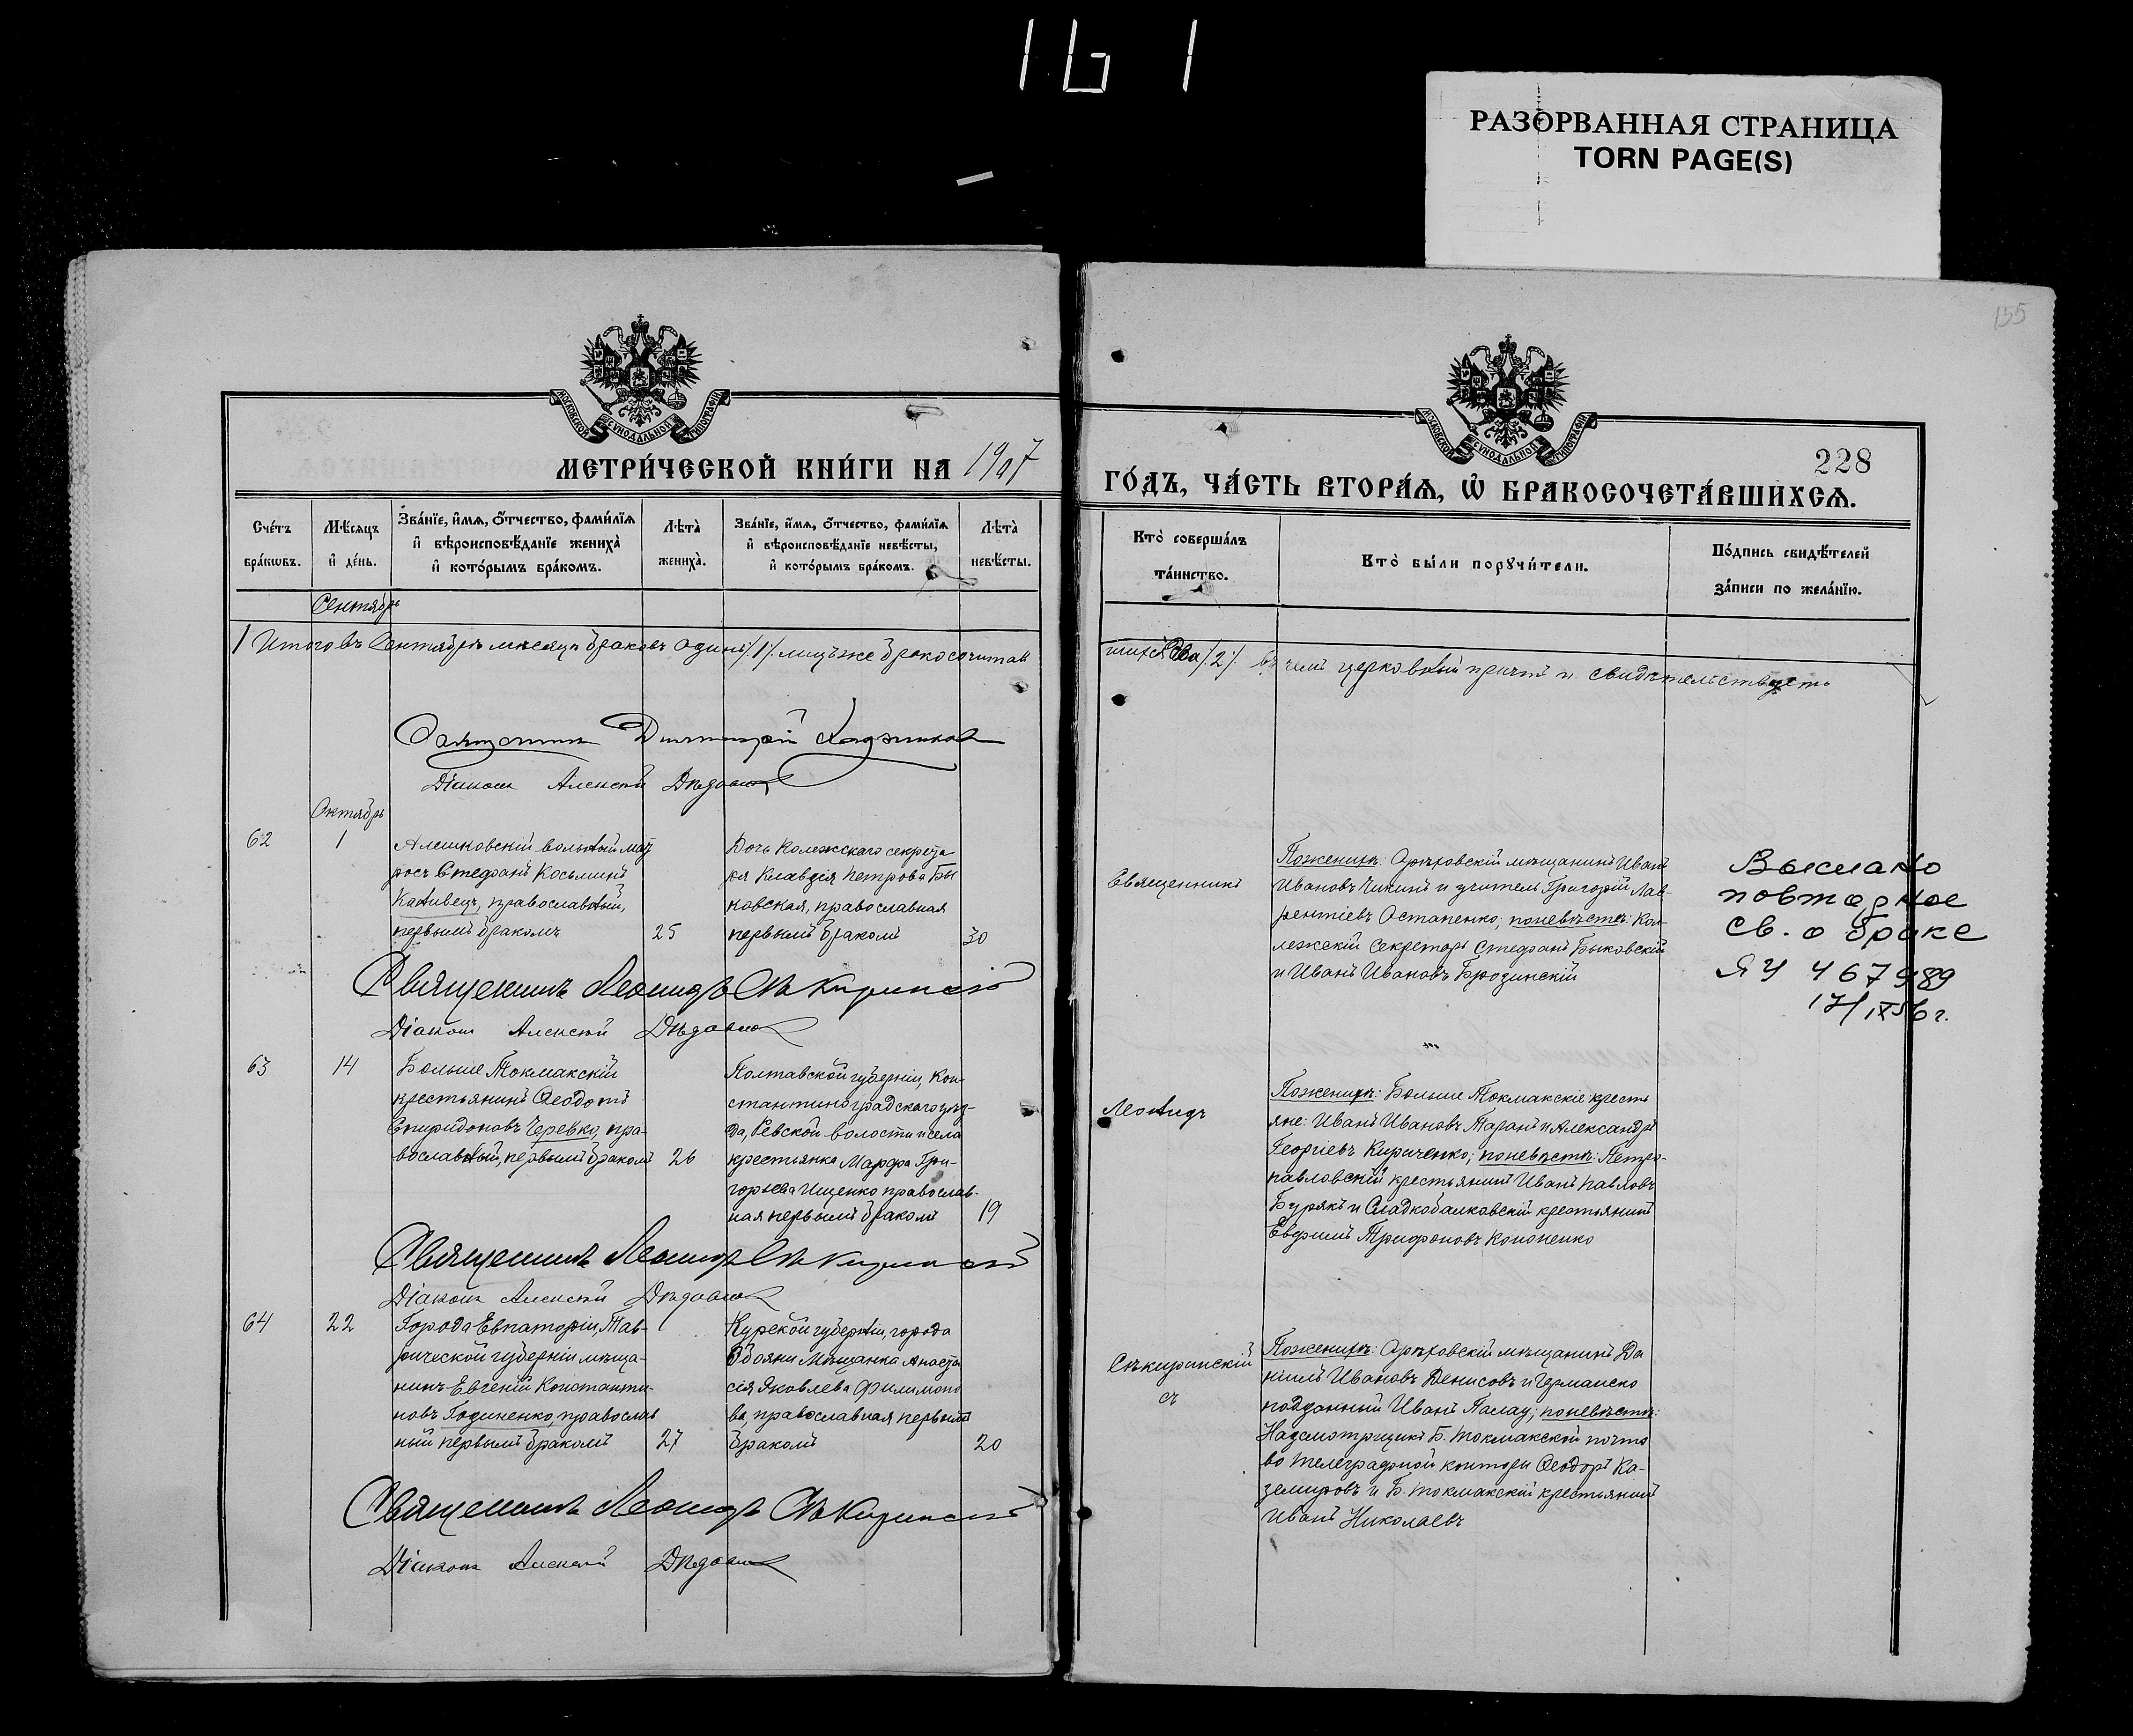 161
РАЗОРВАННАЯ СТРАНИЦА
TORN PAGE(S)
155
МОСКОВСКОЙ СѴНОДАЛЬНОЙ ТИПОГРАФІИ
МОСКОВСКОЙ СѴНОДАЛЬНОЙ ТИПОГРАФІИ
МЕТРИ́ЧЕСКОЙ КНИ́ГИ НА 1907
228
ГО́ДЪ, ЧА́СТЬ ВТОРА́Ѧ, Ѡ҆ БРАКОСОЧЕТА́ВШИХСѦ.
Сче́тъ бра́кѡвъ.
Мѣ́сѧцъ и҆ де́нь.
Зва́нїе, и҆́мѧ, ѻ҆́тчество, фами́лїѧ и҆ вѣроисповѣ́данїе жениха̀ и҆ кото́рымъ бра́комъ.
Лѣта̀ жениха̀.
Зва́нїе, и҆́мѧ, ѻ҆́тчество, фами́лїѧ и҆ вѣроисповѣ́данїе невѣ́сты, и҆ кото́рымъ бра́комъ.
Лѣта̀ невѣ́сты.
Кто̀ соверша́лъ та́инство.
Кто̀ бы́ли порꙋчи́тели.
По́дпись свидѣ́телей за́писи по жела́нїю.
Сентябрь
1 Итого въ Сентябрѣ мѣсяцѣ браковъ одинъ /1/. лицъ же бракосочитав
шихся два /2/. въ чемъ церковный причтъ и свидѣтельствуетъ
Священникъ Димитрій
Діаконъ Алексѣй
Октябрь
62
1
Алешковскій вольный мат
росъ Стефанъ Косьминъ
Кативецъ, православный,
первымъ бракомъ
25
Дочь Колежскаго секрета
ря Клавдія Петрова Бы
ковская, православная
первымъ бракомъ
30
Священникъ
По женихѣ: Орѣховскій мѣщанинъ Иванъ
Ивановъ Чикинъ и учитель Григорій Лав-
рентіевъ Остапенко; по невѣстѣ: Кол-
лежскій Секретарь Стефанъ Быковскій
и Иванъ Ивановъ Бродинскій
Выслано
повторное
св. о браке
ЯЧ 467989
17/IX56 г.
Священникъ Леонидъ Сѣкиринскій
Діаконъ Алексѣй
63
14
Больше Токмакскій
крестьянинъ Ѳеодотъ
Спиридоновъ Черевко, пра-
вославный, первымъ бракомъ
26
Полтавской губерніи, Кон-
стантиноградскаго уѣз-
да, Ревской волости и села
крестьянка Марфа Гри-
горьева Ищенко православ-
ная первымъ бракомъ
19
Леонидъ
По женихѣ: Больше Токмакскіе кресть
яне: Иванъ Ивановъ Таранъ и Александръ
Георгіевъ Кириченко; по невѣстѣ: Петро-
павловскій крестьянинъ Иванъ Павловъ
Бурякъ и Сладкобалковскій крестьянинъ
Евфимъ Трифоновъ Кононенко
Священникъ Леонидъ Сѣкиринскій
Діаконъ Алексѣй
64
22
Города Евпаторіи, Тав-
рической губерніи мѣща-
нинъ Евгеній Константи-
новъ Годиненко, православ
ный первымъ бракомъ
27
Курской губерніи, города
Обояни Мѣщанка Анаста
сія Яковлева Филимоно
ва, православная первымъ
бракомъ
20
Сѣкиринскій
съ
По женихѣ: Орѣховскій мѣщанинъ Да
ніилъ Ивановъ Денисовъ и Германско
подданный Иванъ Палау; по невѣстѣ:
Надсмотрщикъ Б. Токмакской почто
во телеграфной конторы Ѳеодоръ Ка-
земировъ и Б. Токмакскій крестьянинъ
Иванъ Николаевъ
Священникъ Леонидъ Сѣкиринскій
Діаконъ Алексѣй